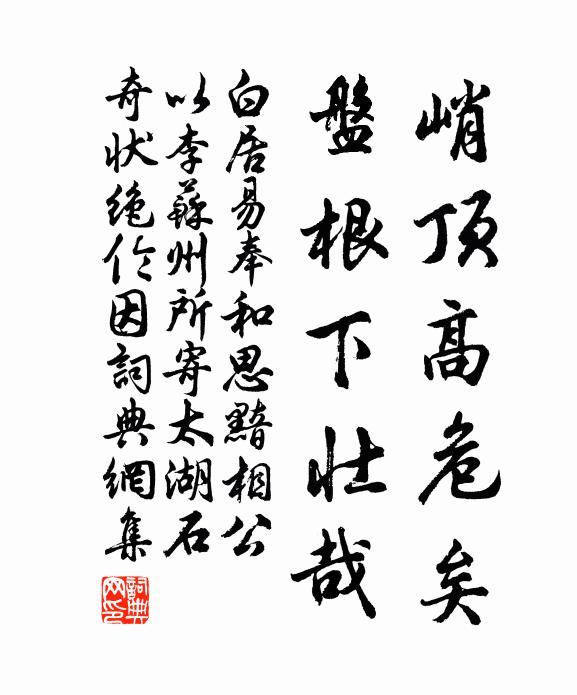 峭顶高危矣
盤根下壮哉
白居易奉和思黯相公
以李蘇州所寄太湖石
奇状绝伦因詞典網集